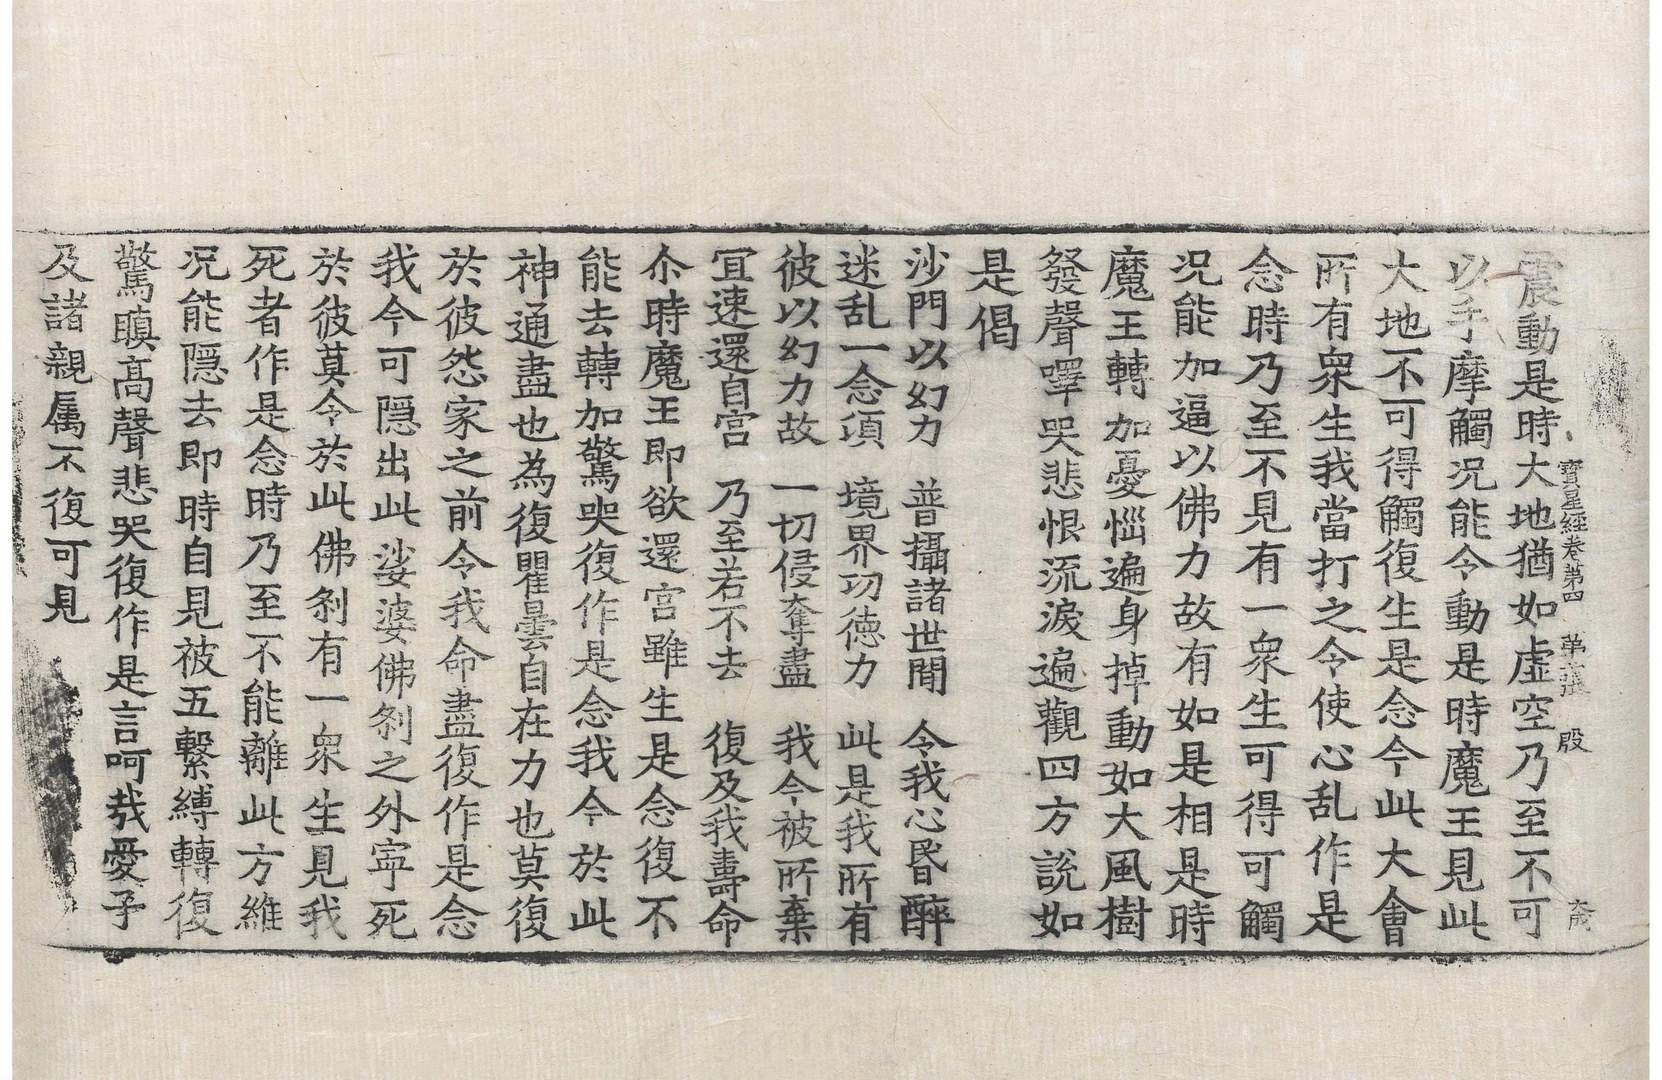 寶星經卷第四 第 張 殷
震動是時大地猶如虛空乃至不可
以手摩觸况能令動是時魔王見此
大地不可得觸復生是念今此大會
所有衆生我當打之令使心乱作是
念時乃至不見有一衆生可得可觸
况能加逼以佛力故有如是相是時
魔王轉加憂惱遍身掉動如大風樹
發聲嘷哭悲恨流淚遍觀四方說如
是偈
沙門以幻力 普攝諸世間 令我心昬醉
迷乱一念頃 境界功德力 此是我所有
彼以幻力故 一切侵奪盡 我今被所棄
冝速還自宮 乃至若不去 復及我壽命
尒時魔王即欲還宮雖生是念復不
能去轉加驚哭復作是念我今於此
神通盡也為復瞿曇自在力也莫復
於彼怨家之前令我命盡復作是念
我今可隱出此娑婆佛刹之外寧死
於彼莫令於此佛刹有一衆生見我
死者作是念時乃至不能離此方維
况能隱去即時自見被五繫縛轉復
驚瞋高聲悲哭復作是言呵哉愛子
及諸親属不復可見